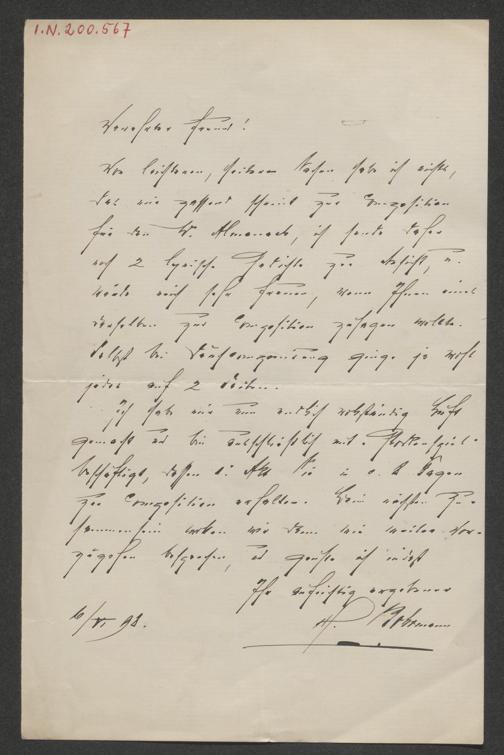 I.N. 200.567
Verehrter Freund!
Von leichteren, heiteren Sachen habe ich nichts,
das mir passend schiene zur Composition
für den W. Almanach, ich sende daher
2 lyrische Gedichte zur Ansicht, u.
würde mich sehr freuen, wenn Ihnen eines
derselben zur Composition zusagen wollte.
Selbst bei ginge ja wohl
jedes auf 2 Seiten.
Ich habe mir nun endlich vollständig Luft
gemacht und bin ausschließlich mit
beschäftigt, dessen Akt Sie in Tagen
zur Composition erhalten. Beim nächsten Zu-
sammensein werden wir dann weitere Vor-
besprechen, und grüße ich indeß
Ihr aufrichtig ergebener
6/VI 98.